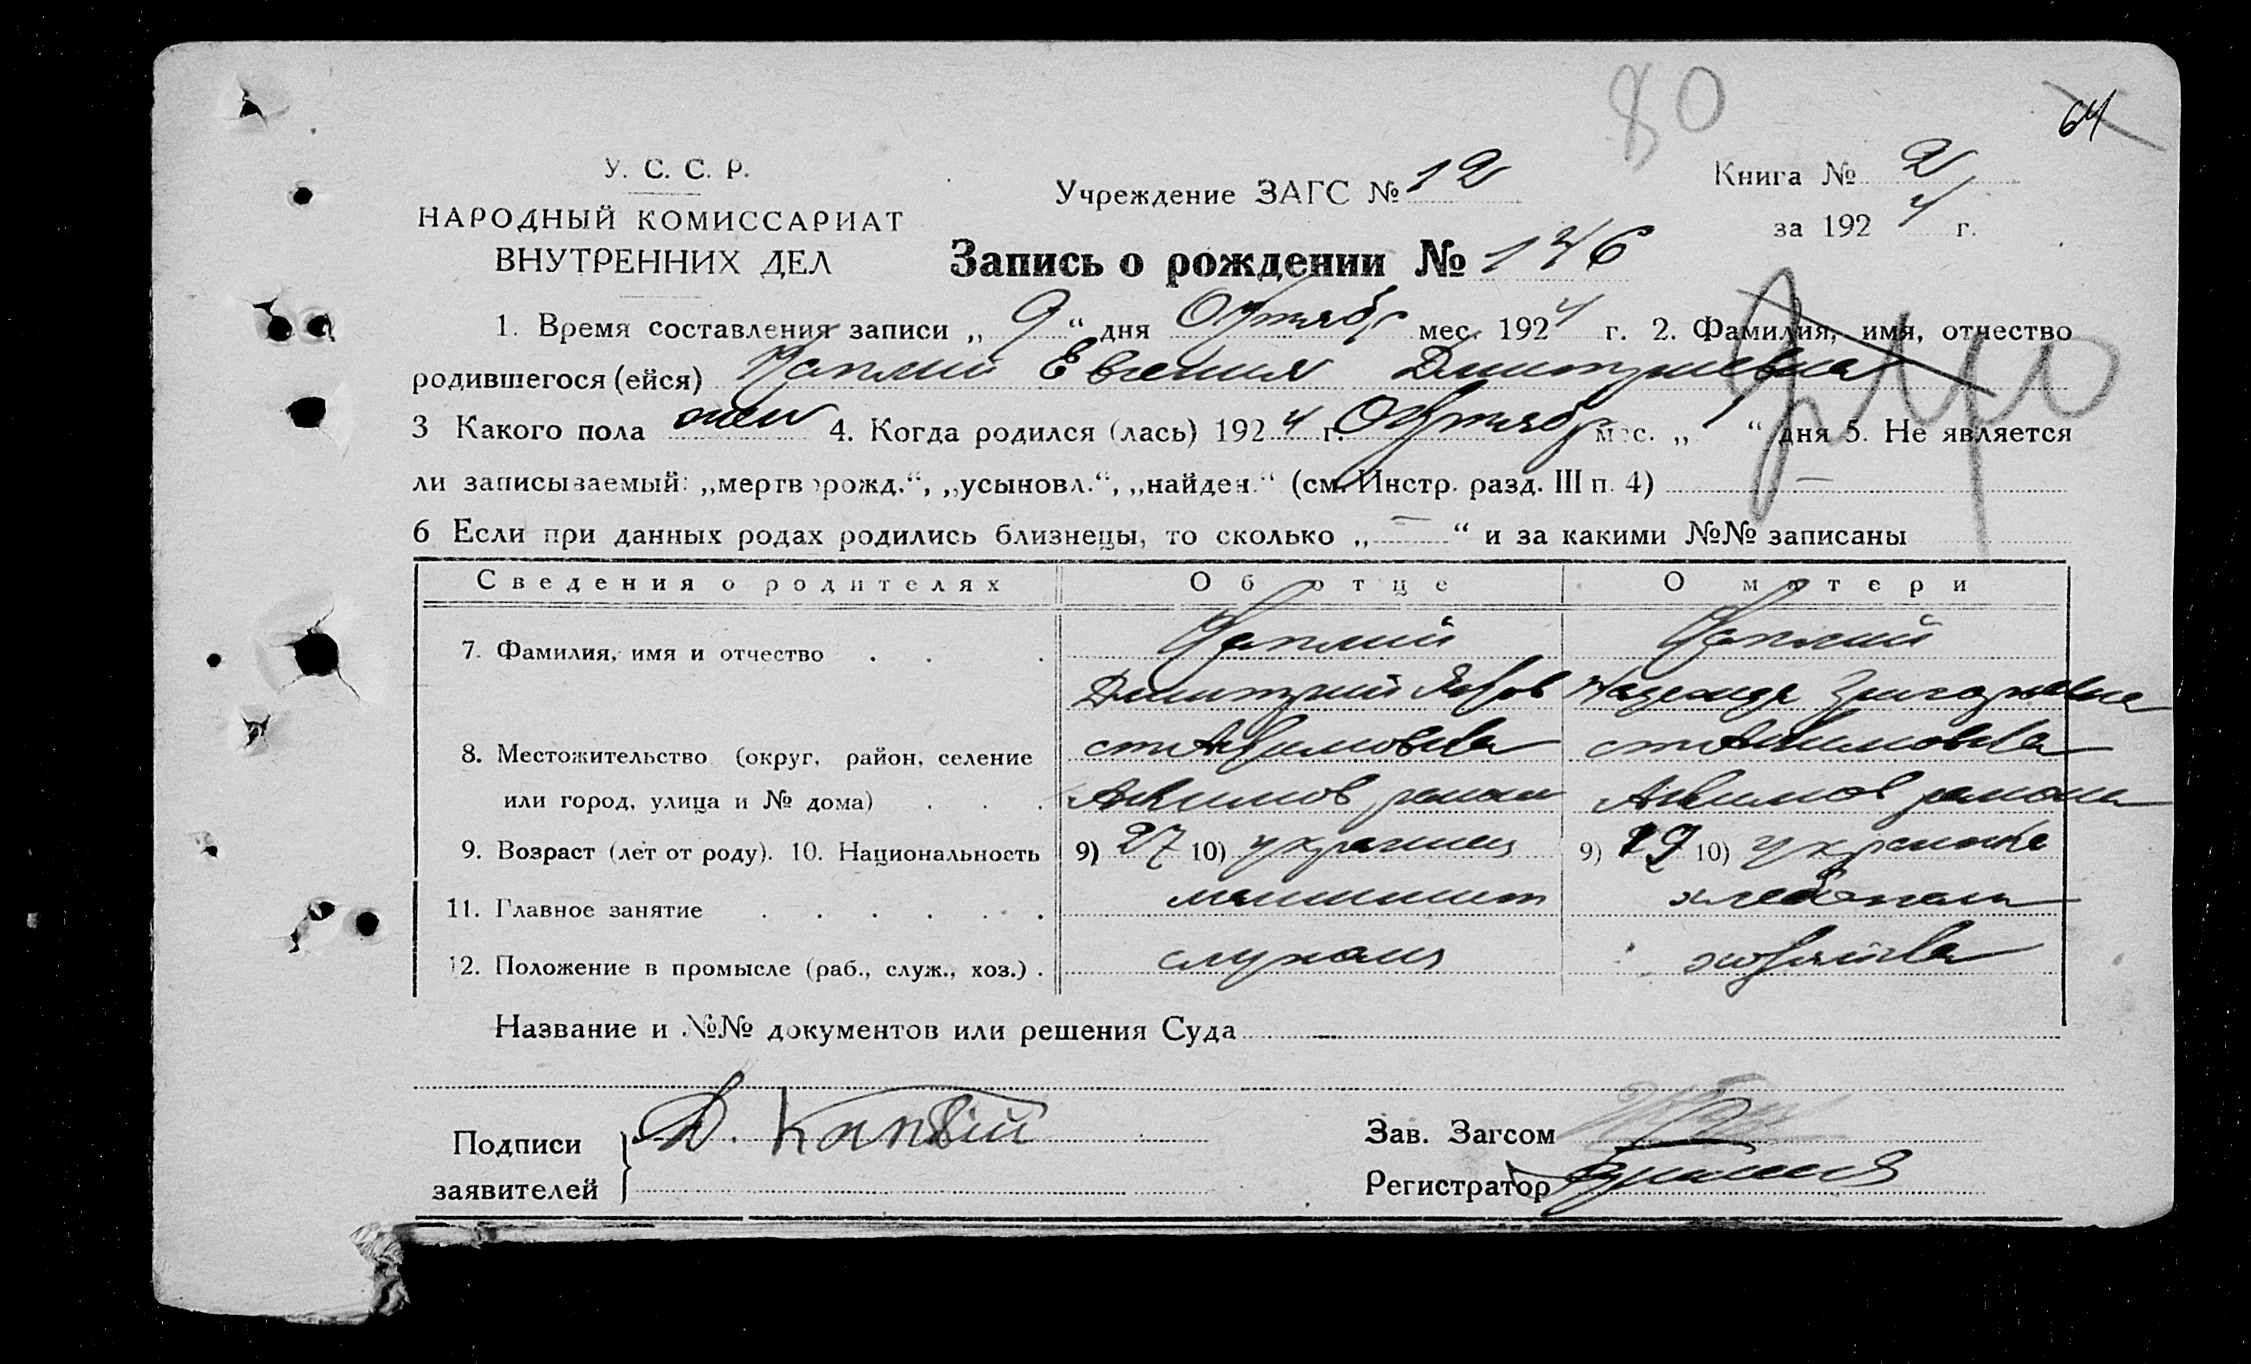 80
64
У. С. С. Р.
НАРОДНЫЙ КОМИССАРИАТ
ВНУТРЕННИХ ДЕЛ
Учреждение ЗАГС № 12
Книга № 2
за 192 4 г.
Запись о рождении № 146
1. Время составления записи „ 9 “ дня Октябр мес. 192 4 г. 2. Фамилия, имя, отчество
родившегося (ейся) Каплий Евгения Дмитриевна
3 Какого пола жен 4. Когда родился (лась) 192 4 г. Октябр мес. „ 1 “ дня 5. Не является
ли записываемый: „мертворожд.“, „усыновл.“, „найден.“ (см. Инстр. разд. III п. 4) —
6 Если при данных родах родились близнецы, то сколько „ — “ и за какими №№ записаны
Сведения о родителях Об отце О матери
7. Фамилия, имя и отчество . . . Каплий Каплий
Дмитрий Яковл Надежда Григорьевна
8. Местожительство (округ, район, селение ст Акимовка ст Акимовка
или город, улица и № дома) . . . Акимов района Акимов района
9. Возраст (лет от роду). 10. Национальность 9) 27 10) украинец 9) 19 10) украинка
11. Главное занятие . . . . . . машинист хлебопаш
12. Положение в промысле (раб., служ., хоз.) . служащ хозяйка
Название и №№ документов или решения Суда —
Подписи
заявителей
Д. Каплій
Зав. Загсом
Регистратор